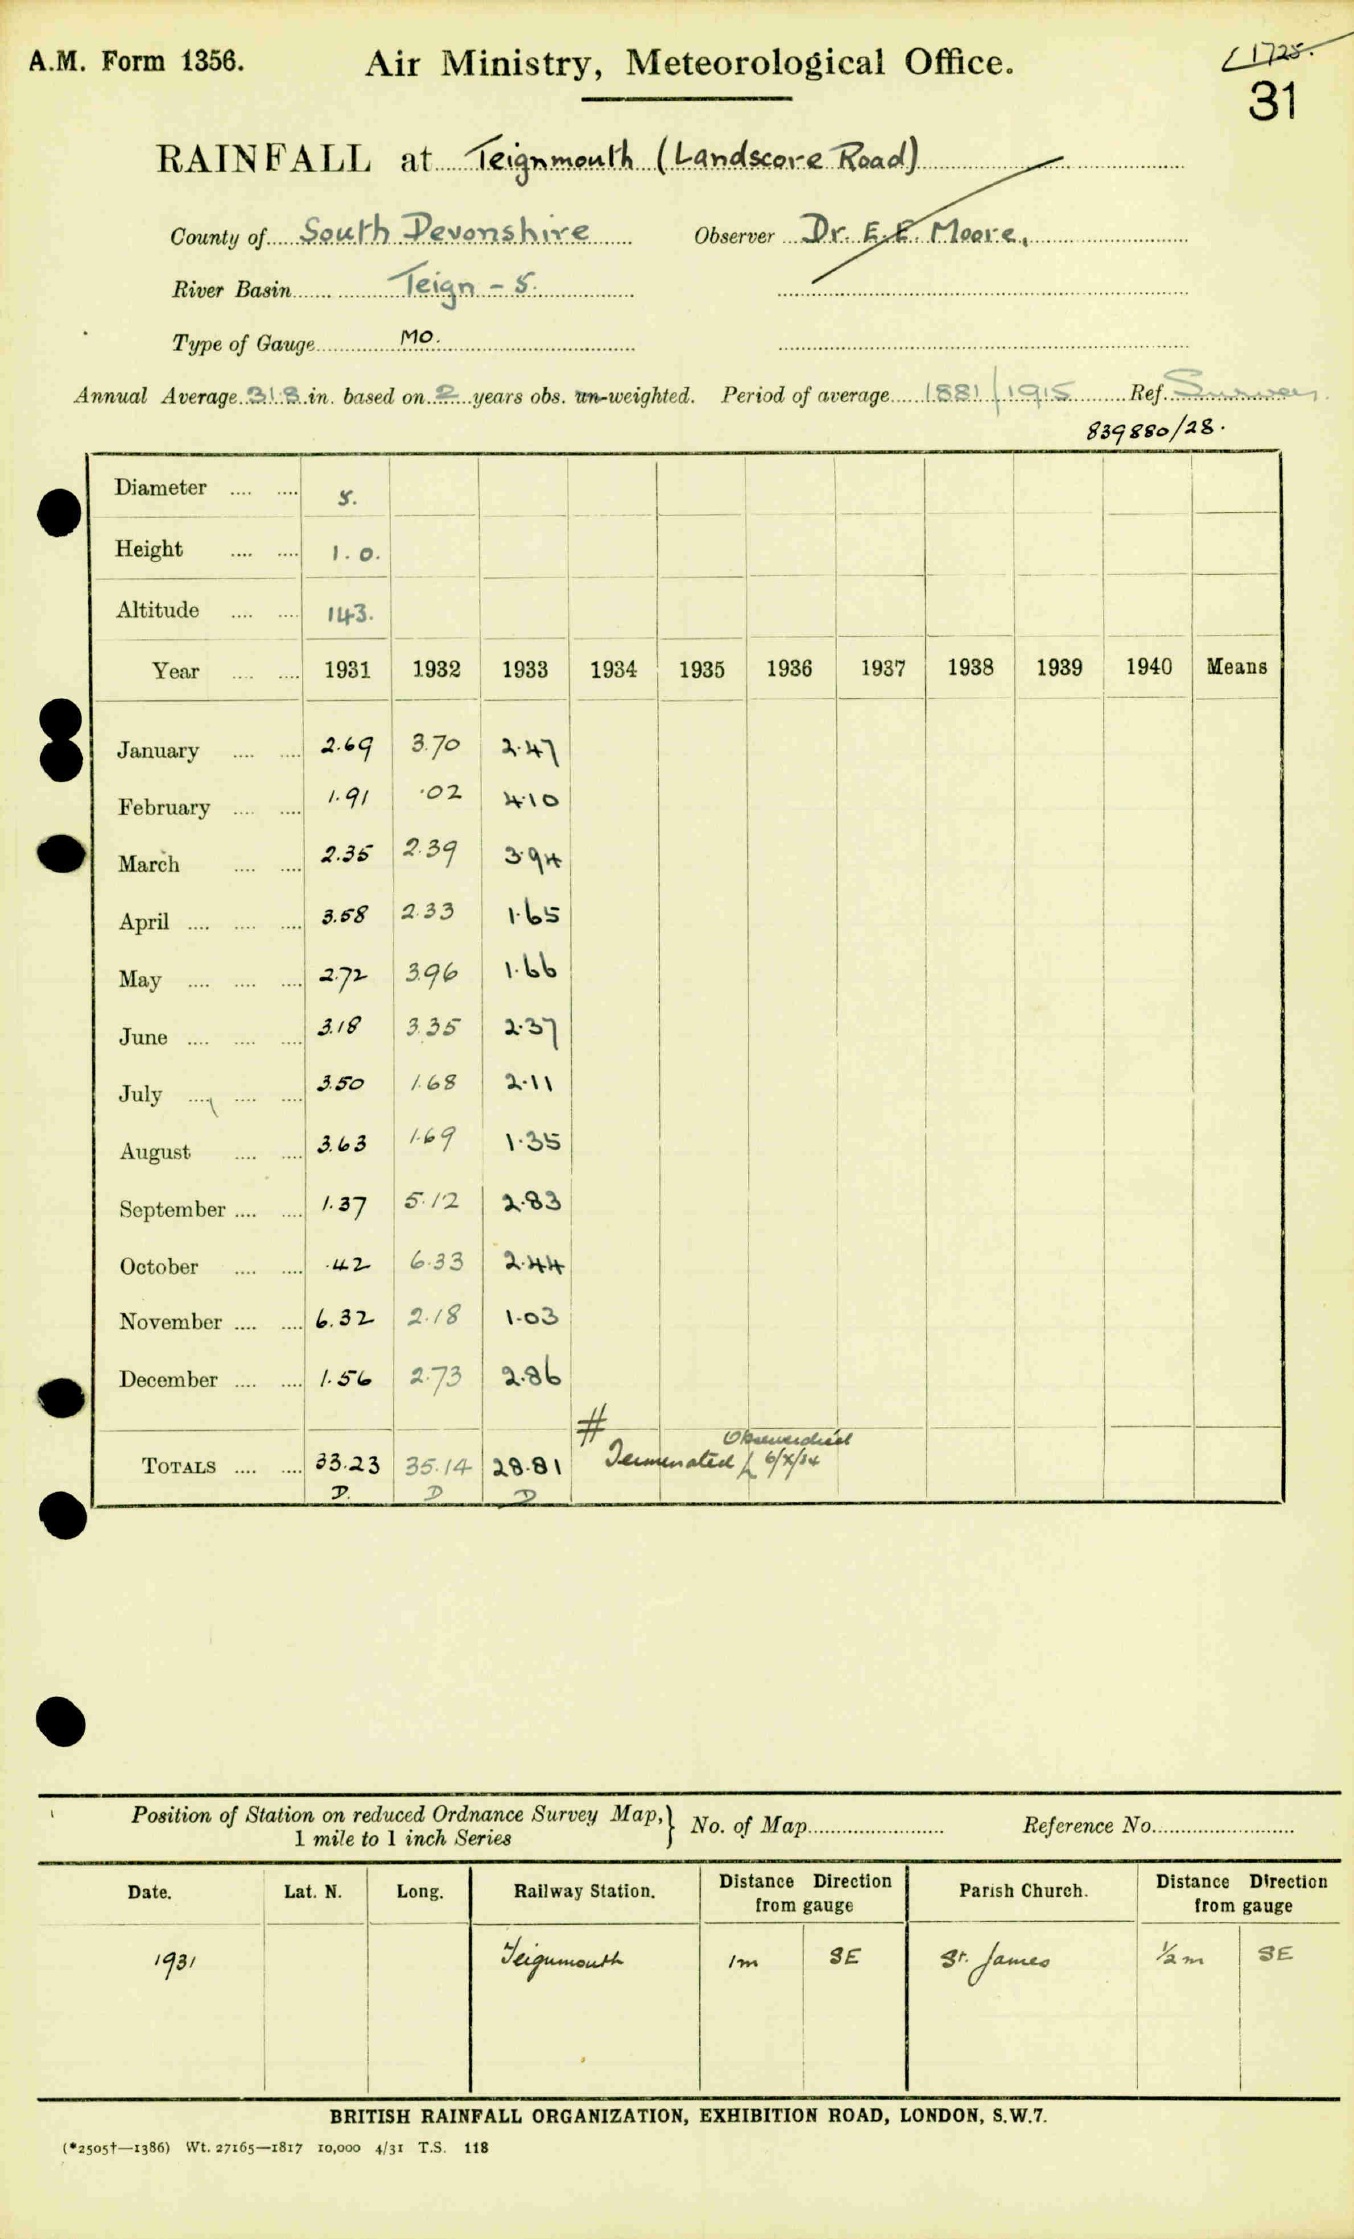 A.M. Form 1356. Air Ministry, Meteorological Office. 1725.
31
RAINFALL at Teignmouth (Landscore Road)
County of South Devonshire Observer Dr. E.E. Moore,
River Basin Teign - 5.
Type of Gauge MO.
Annual Average 31.8 in. based on 2 years obs. un-weighted. Period of average 1881/1915 Ref. Survey
839880/28.
Diameter .... .... 5.
Height .... .... 1.0.
Altitude .... .... 143.
Year .... .... 1931 1932 1933 1934 1935 1936 1937 1938 1939 1940 Means
January .... .... 2.69 3.70 2.47
February .... .... 1.91 .02 4.10
March .... .... 2.35 2.39 3.94
April .... .... .... 3.58 2.33 1.65
May .... .... .... 2.72 3.96 1.66
June .... .... .... 3.18 3.35 2.37
July .... .... .... 3.50 1.68 2.11
August .... .... 3.63 1.69 1.35
September .... .... 1.37 5.12 2.83
October .... .... .42 6.33 2.44
November .... .... 6.32 2.18 1.03
December .... .... 1.56 2.73 2.86
# Observer died
TOTALS .... .... 33.23 35.14 28.81 Terminated 6/X/34
D. D D
Position of Station on reduced Ordnance Survey Map, } No. of Map Reference No.
1 mile to 1 inch Series
Date. Lat. N. Long. Railway Station. Distance Direction from gauge Parish Church. Distance Direction from gauge
1931 Teignmouth 1m SE St. James ½m SE
BRITISH RAINFALL ORGANIZATION, EXHIBITION ROAD, LONDON, S.W.7.
(*2505†—1386) Wt. 27165—1817 10,000 4/31 T.S. 118